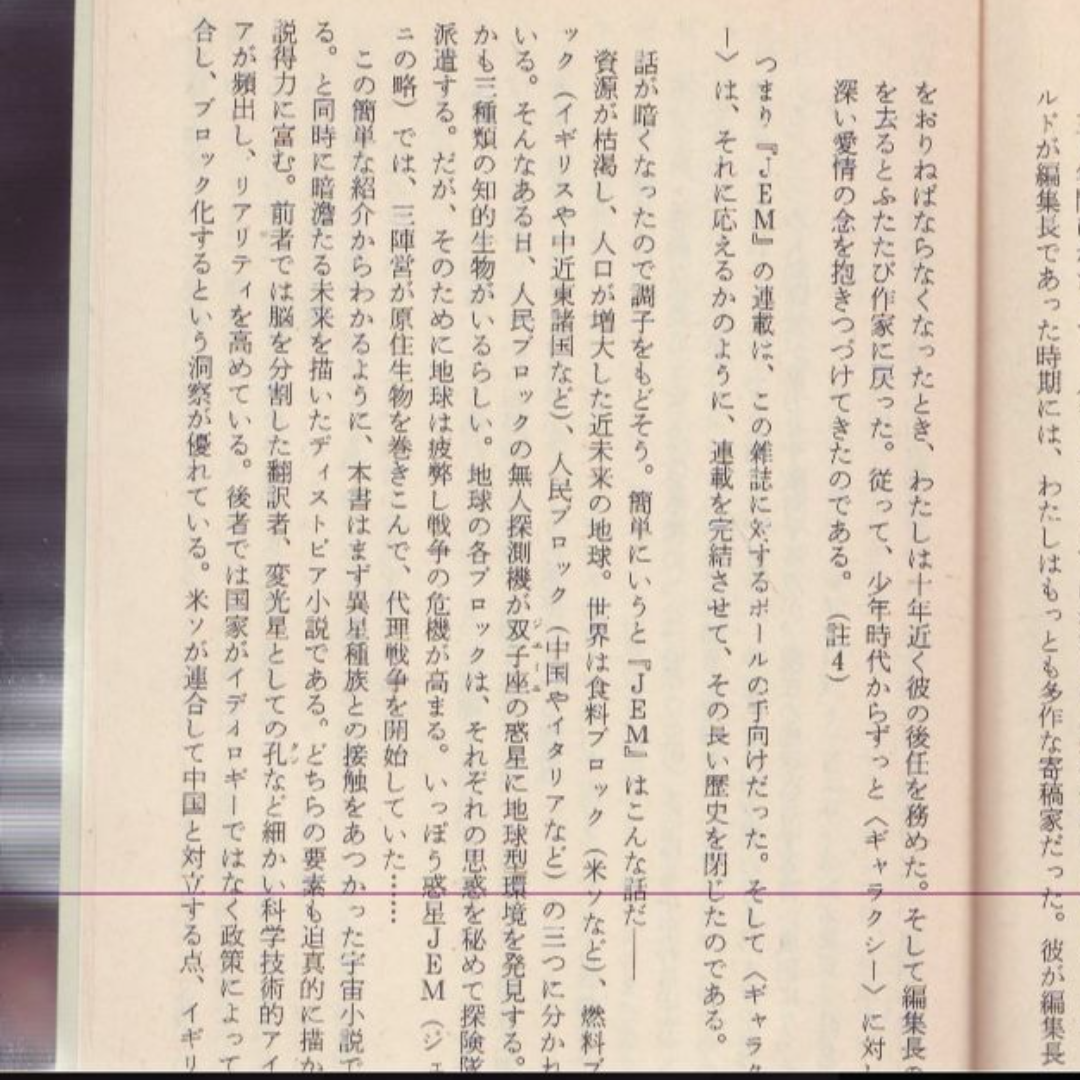 ルドが編集長であった時期には、わたしはもっとも多作な寄稿家だった。彼が編集長
をおりねばならなくなったとき、わたしは十年近く彼の後任を務めた。そして編集長の
を去るとふたたび作家に戻った。従って、少年時代からずっと〈ギャラクシー〉に対し
深い愛情の念を抱きつづけてきたのである。（註4）
つまり『JEM』の連載は、この雑誌に対するポールの手向けだった。そして〈ギャラク
ー〉は、それに応えるかのように、連載を完結させて、その長い歴史を閉じたのである。
話が暗くなったので調子をもどそう。簡単にいうと『JEM』はこんな話だ――
資源が枯渇し、人口が増大した近未来の地球。世界は食料ブロック（米ソなど）、燃料ブ
ック（イギリスや中近東諸国など）、人民ブロック（中国やイタリアなど）の三つに分かれ
いる。そんなある日、人民ブロックの無人探測機が双子座の惑星に地球型環境を発見する。
かも三種類の知的生物がいるらしい。地球の各ブロックは、それぞれの思惑を秘めて探険隊
派遣する。だが、そのために地球は疲弊し戦争の危機が高まる。いっぽう惑星JEM（ジェ
ニの略）では、三陣営が原住生物を巻きこんで、代理戦争を開始していた……
この簡単な紹介からわかるように、本書はまず異星種族との接触をあつかった宇宙小説で
る。と同時に暗澹たる未来を描いたディストピア小説である。どちらの要素も迫真的に描か
説得力に富む。前者では脳を分割した翻訳者、変光星としての孔など細かい科学技術的アイ
アが頻出し、リアリティを高めている。後者では国家がイディロギーではなく政策によって
合し、ブロック化するという洞察が優れている。米ソが連合して中国と対立する点、イギリ